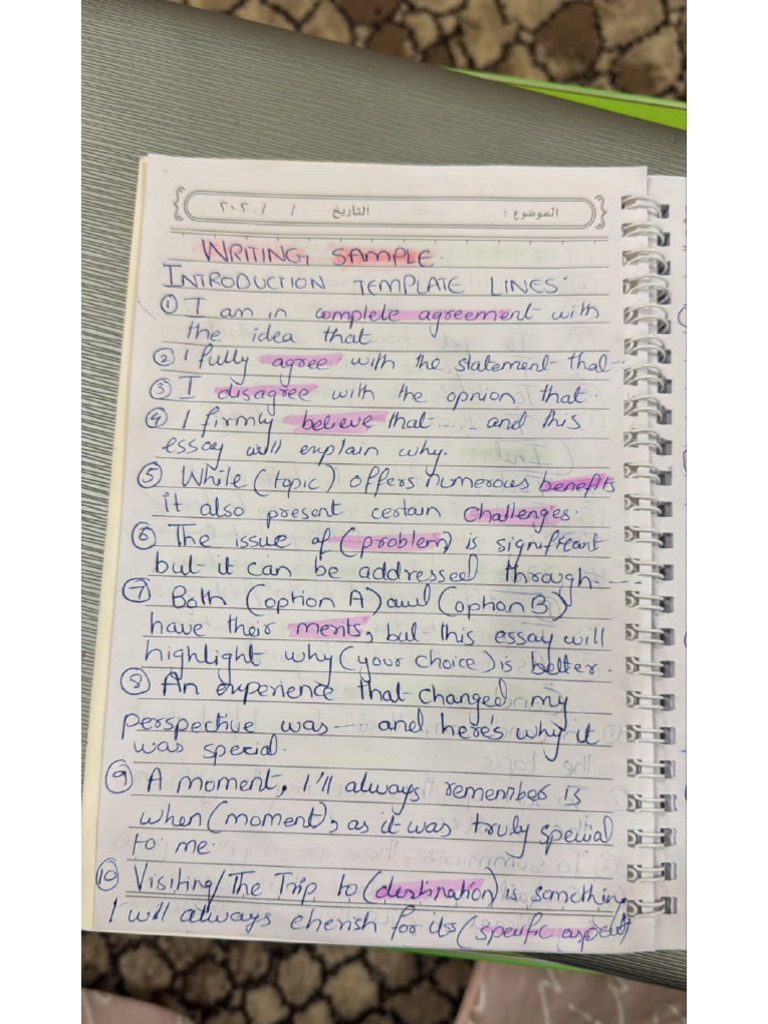 الموضوع : التاريخ / / ٢٠٢
WRITING SAMPLE.
INTRODUCTION TEMPLATE LINES.
① I am in complete agreement with
the idea that
② I fully agree with the statement that
③ I disagree with the opnion that.
④ I firmly believe that ..... and this
essay will explain why.
⑤ While (topic) offers numerous benefits
it also present certain challenges.
⑥ The issue of (problem) is significant
but it can be addressed through.....
⑦ Both (option A) and (option B)
have their merits, but this essay will
highlight why (your choice) is better.
⑧ An experience that changed my
perspective was ... and here's why it
was special.
⑨ A moment, I'll always remember is
when (moment), as it was truly special
to me.
⑩ Visiting/The Trip to (destination) is something
I will always cherish for its (specific aspect)